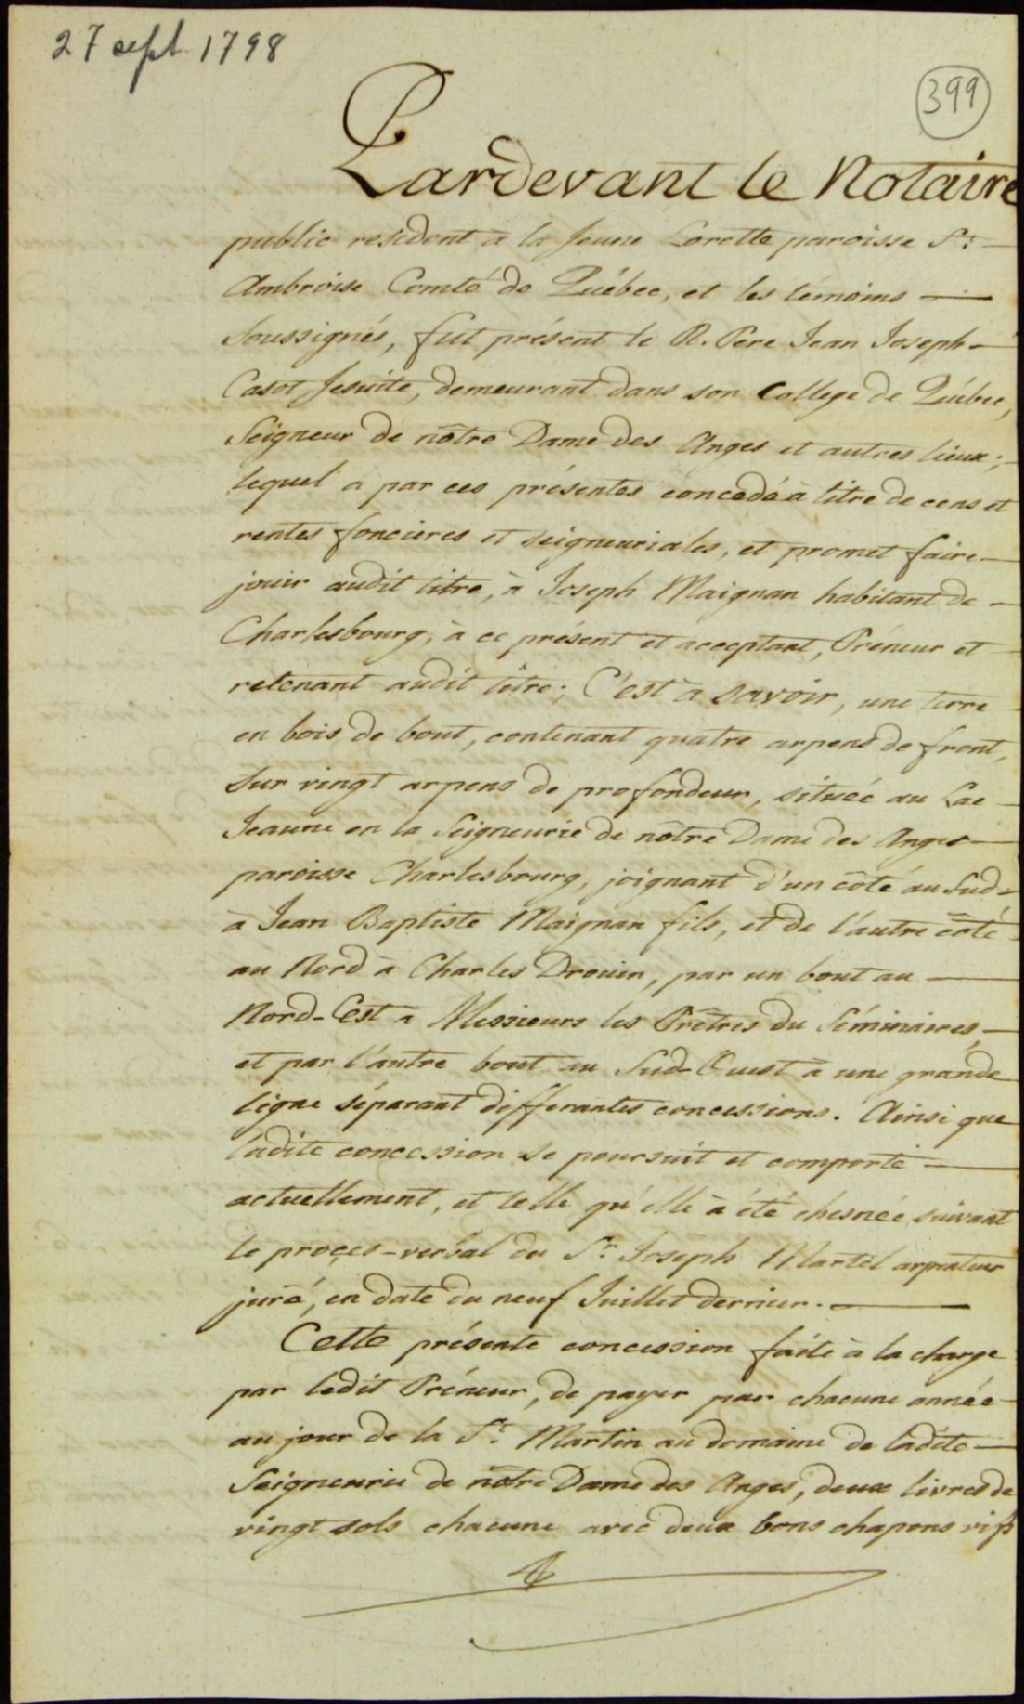 27 sept 1798
399
Pardevant le Notaire
public resident à la Jeune Lorette paroisse St.
Ambroise Comté de Québec, et les témoins
Soussignés, fut présent le R. Pere Jean Joseph
Casot Jesuite, demeurant dans son College de Québec,
Seigneur de nôtre Dame des Anges et autres lieux;
lequel a par ces présentes concedé à titre de cens et
rentes foncieres et seigneuriales, et promet faire
jouir audit titre, à Joseph Maignan habitant de
Charlesbourg, à ce présent et acceptant, Preneur et
retenant audit titre; C'est à savoir, une terre
en bois de bout, contenant quatre arpens de front,
sur vingt arpens de profondeur, située au Lac
Jeaune en la Seigneurie de nôtre Dame des Anges
paroisse Charlesbourg, joignant d'un côté au Sud
à Jean Baptiste Maignan fils, et de l'autre côté
au Nord à Charles Drouin, par un bout au
Nord-Est a Messieurs les Prêtres du Séminaires,
et par l'autre bout au Sud-Ouest à une grande
ligne séparant differantes concessions. Ainsi que
ladite concession se poursuit et comporte
actuellement, et telle qu'elle à été chesnée suivant
le proçes-verbal du Sr. Joseph Martel arpenteur
juré, en date du neuf Juillet dernier.
Cette présente concession faite à la charge
par ledit Preneur, de payer par chacune année
au jour de la St. Martin au domaine de ladite
Seigneurie de nôtre Dame des Anges, deux livres de
vingt sols chacune avec deux bons chapons vifs